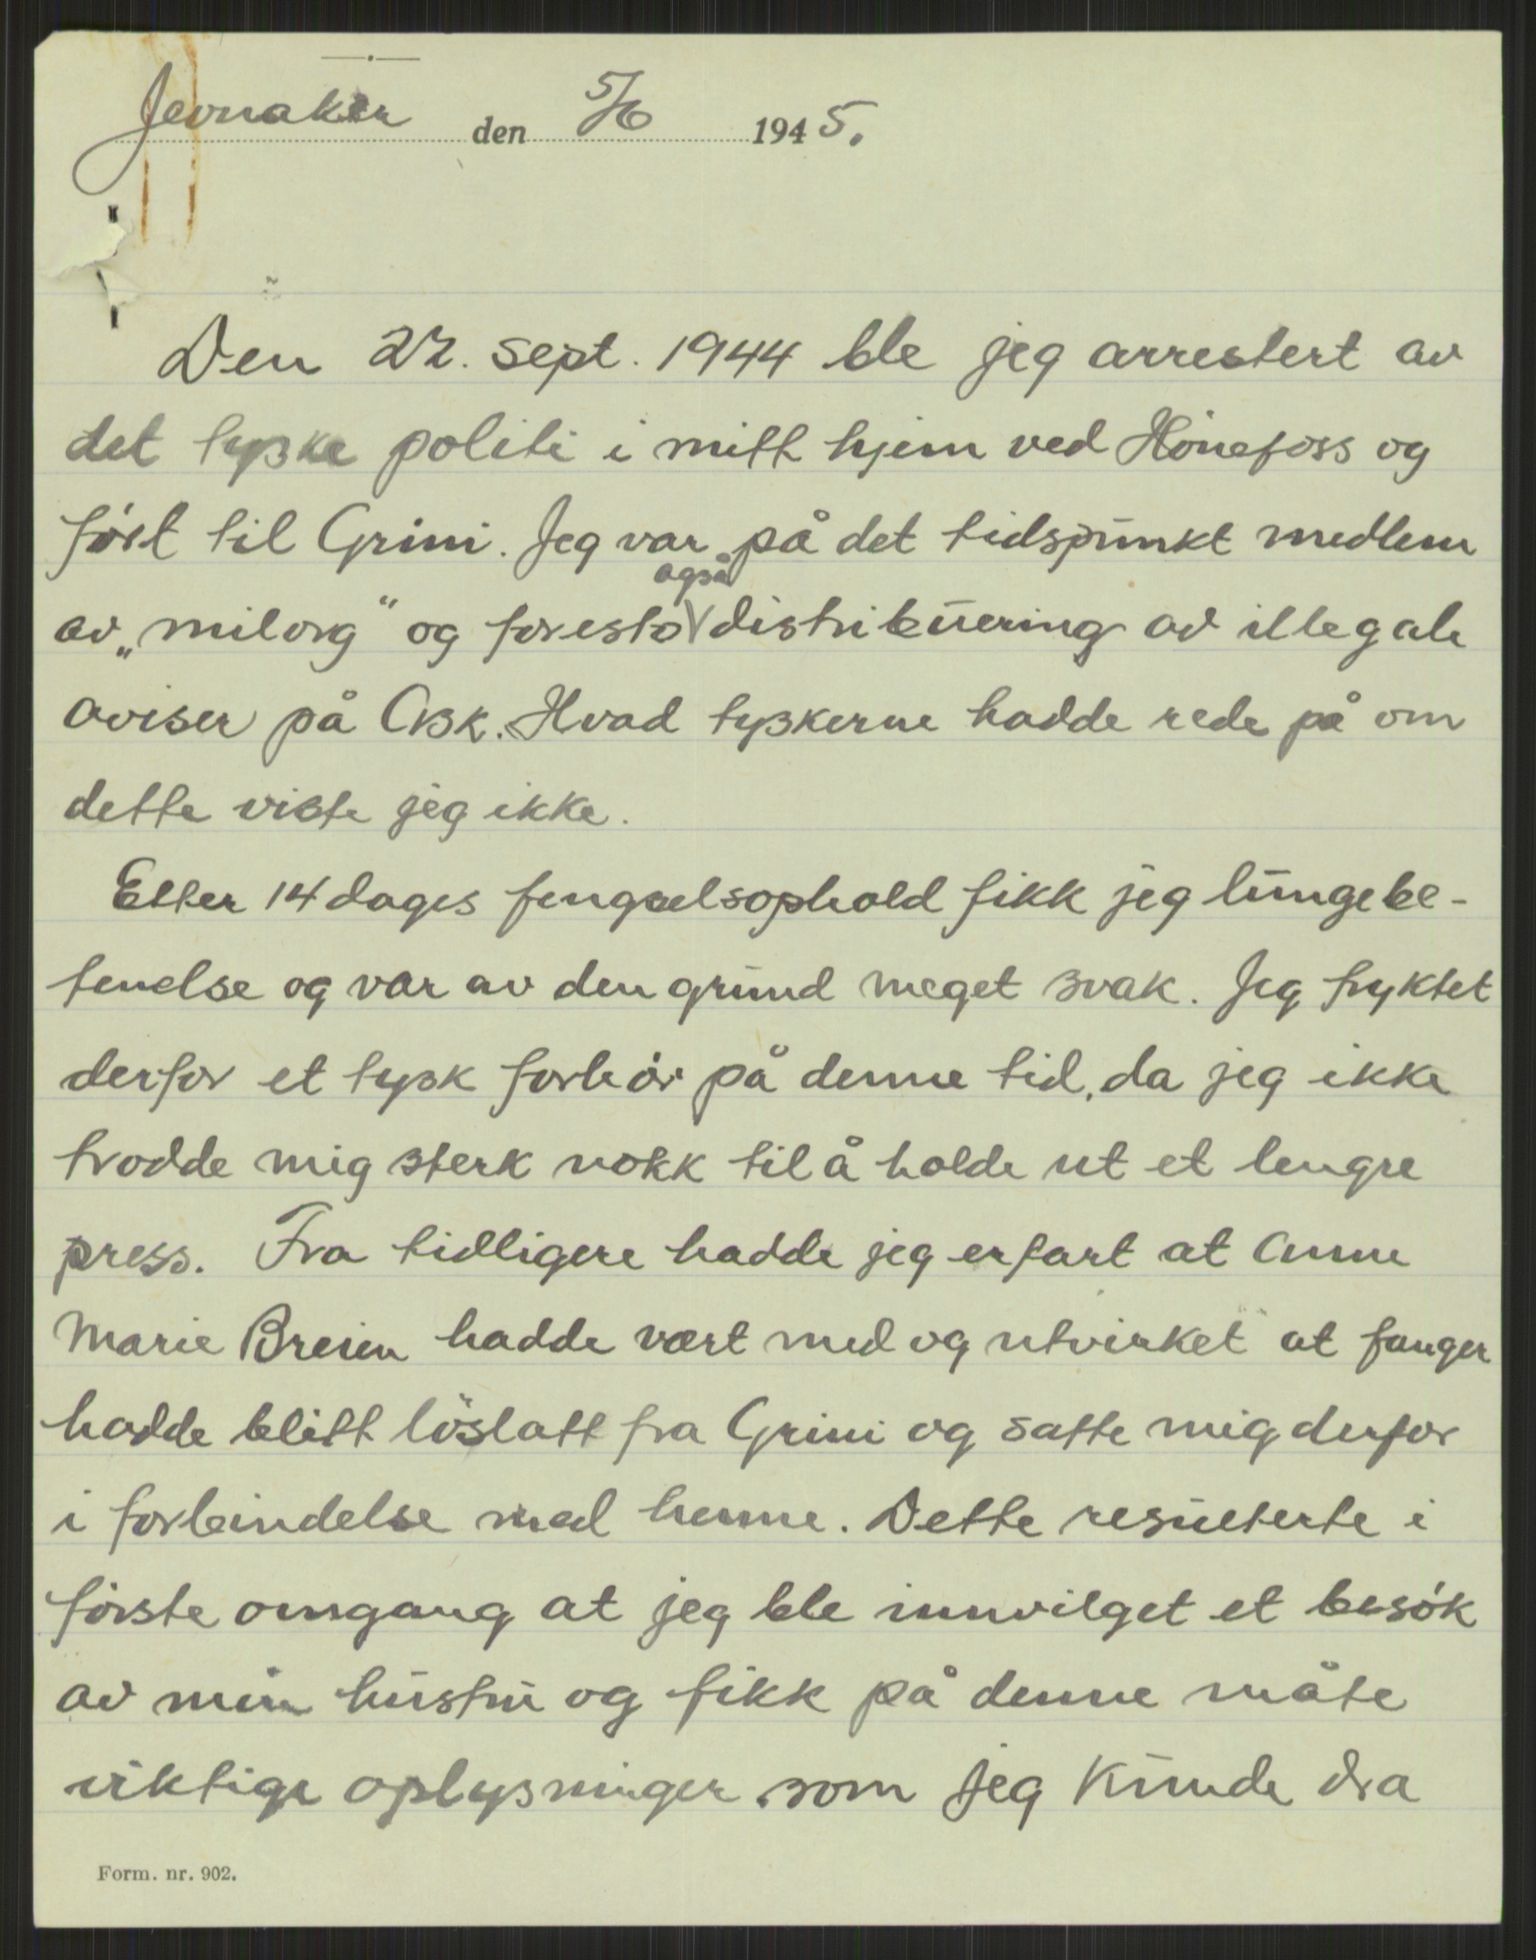 Jevnaker den 5/6 1945.
Den 22. sept. 1944 ble jeg arrestert av
det tyske politi i mitt hjem ved Hönefoss og
fört til Grini. Jeg var på det tidspunkt medlem
også
av „milorg“ og foresto distribuering av illegale
aviser på Ask. Hvad tyskerne hadde rede på om
dette viste jeg ikke.
Etter 14 dages fengselsophold fikk jeg lungebe-
tenelse og var av den grund meget svak. Jeg fryktet
derfor et tysk forhör på denne tid, da jeg ikke
trodde mig sterk nokk til å holde ut et lengre
press. Fra tidligere hadde jeg erfart at Anne
Marie Breien hadde vært med og utvirket at fanger
hadde blitt löslatt fra Grini og satte mig derfor
i forbindelse med henne. Dette resulterte i
förste omgang at jeg ble innvilget et besök
av min hustru og fikk på denne måte
viktige oplysninger som jeg kunde dra
Form. nr. 902.